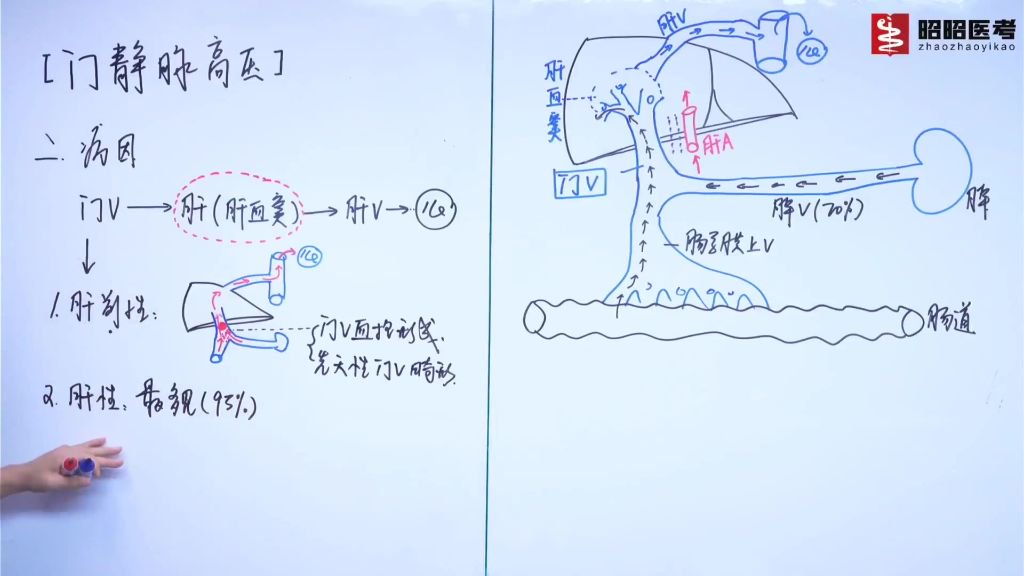 [门静脉高压]
二.病因
门V → 肝(肝血窦) → 肝V → 心
1.肝前性：
门V血栓形成.
先天性门V畸形.
2.肝性：最多见(95%)
昭昭医考
zhaozhaoyikao
肝V
心
肝血窦
肝A
门V
脾V(20%)
脾
肠系膜上V
肠道